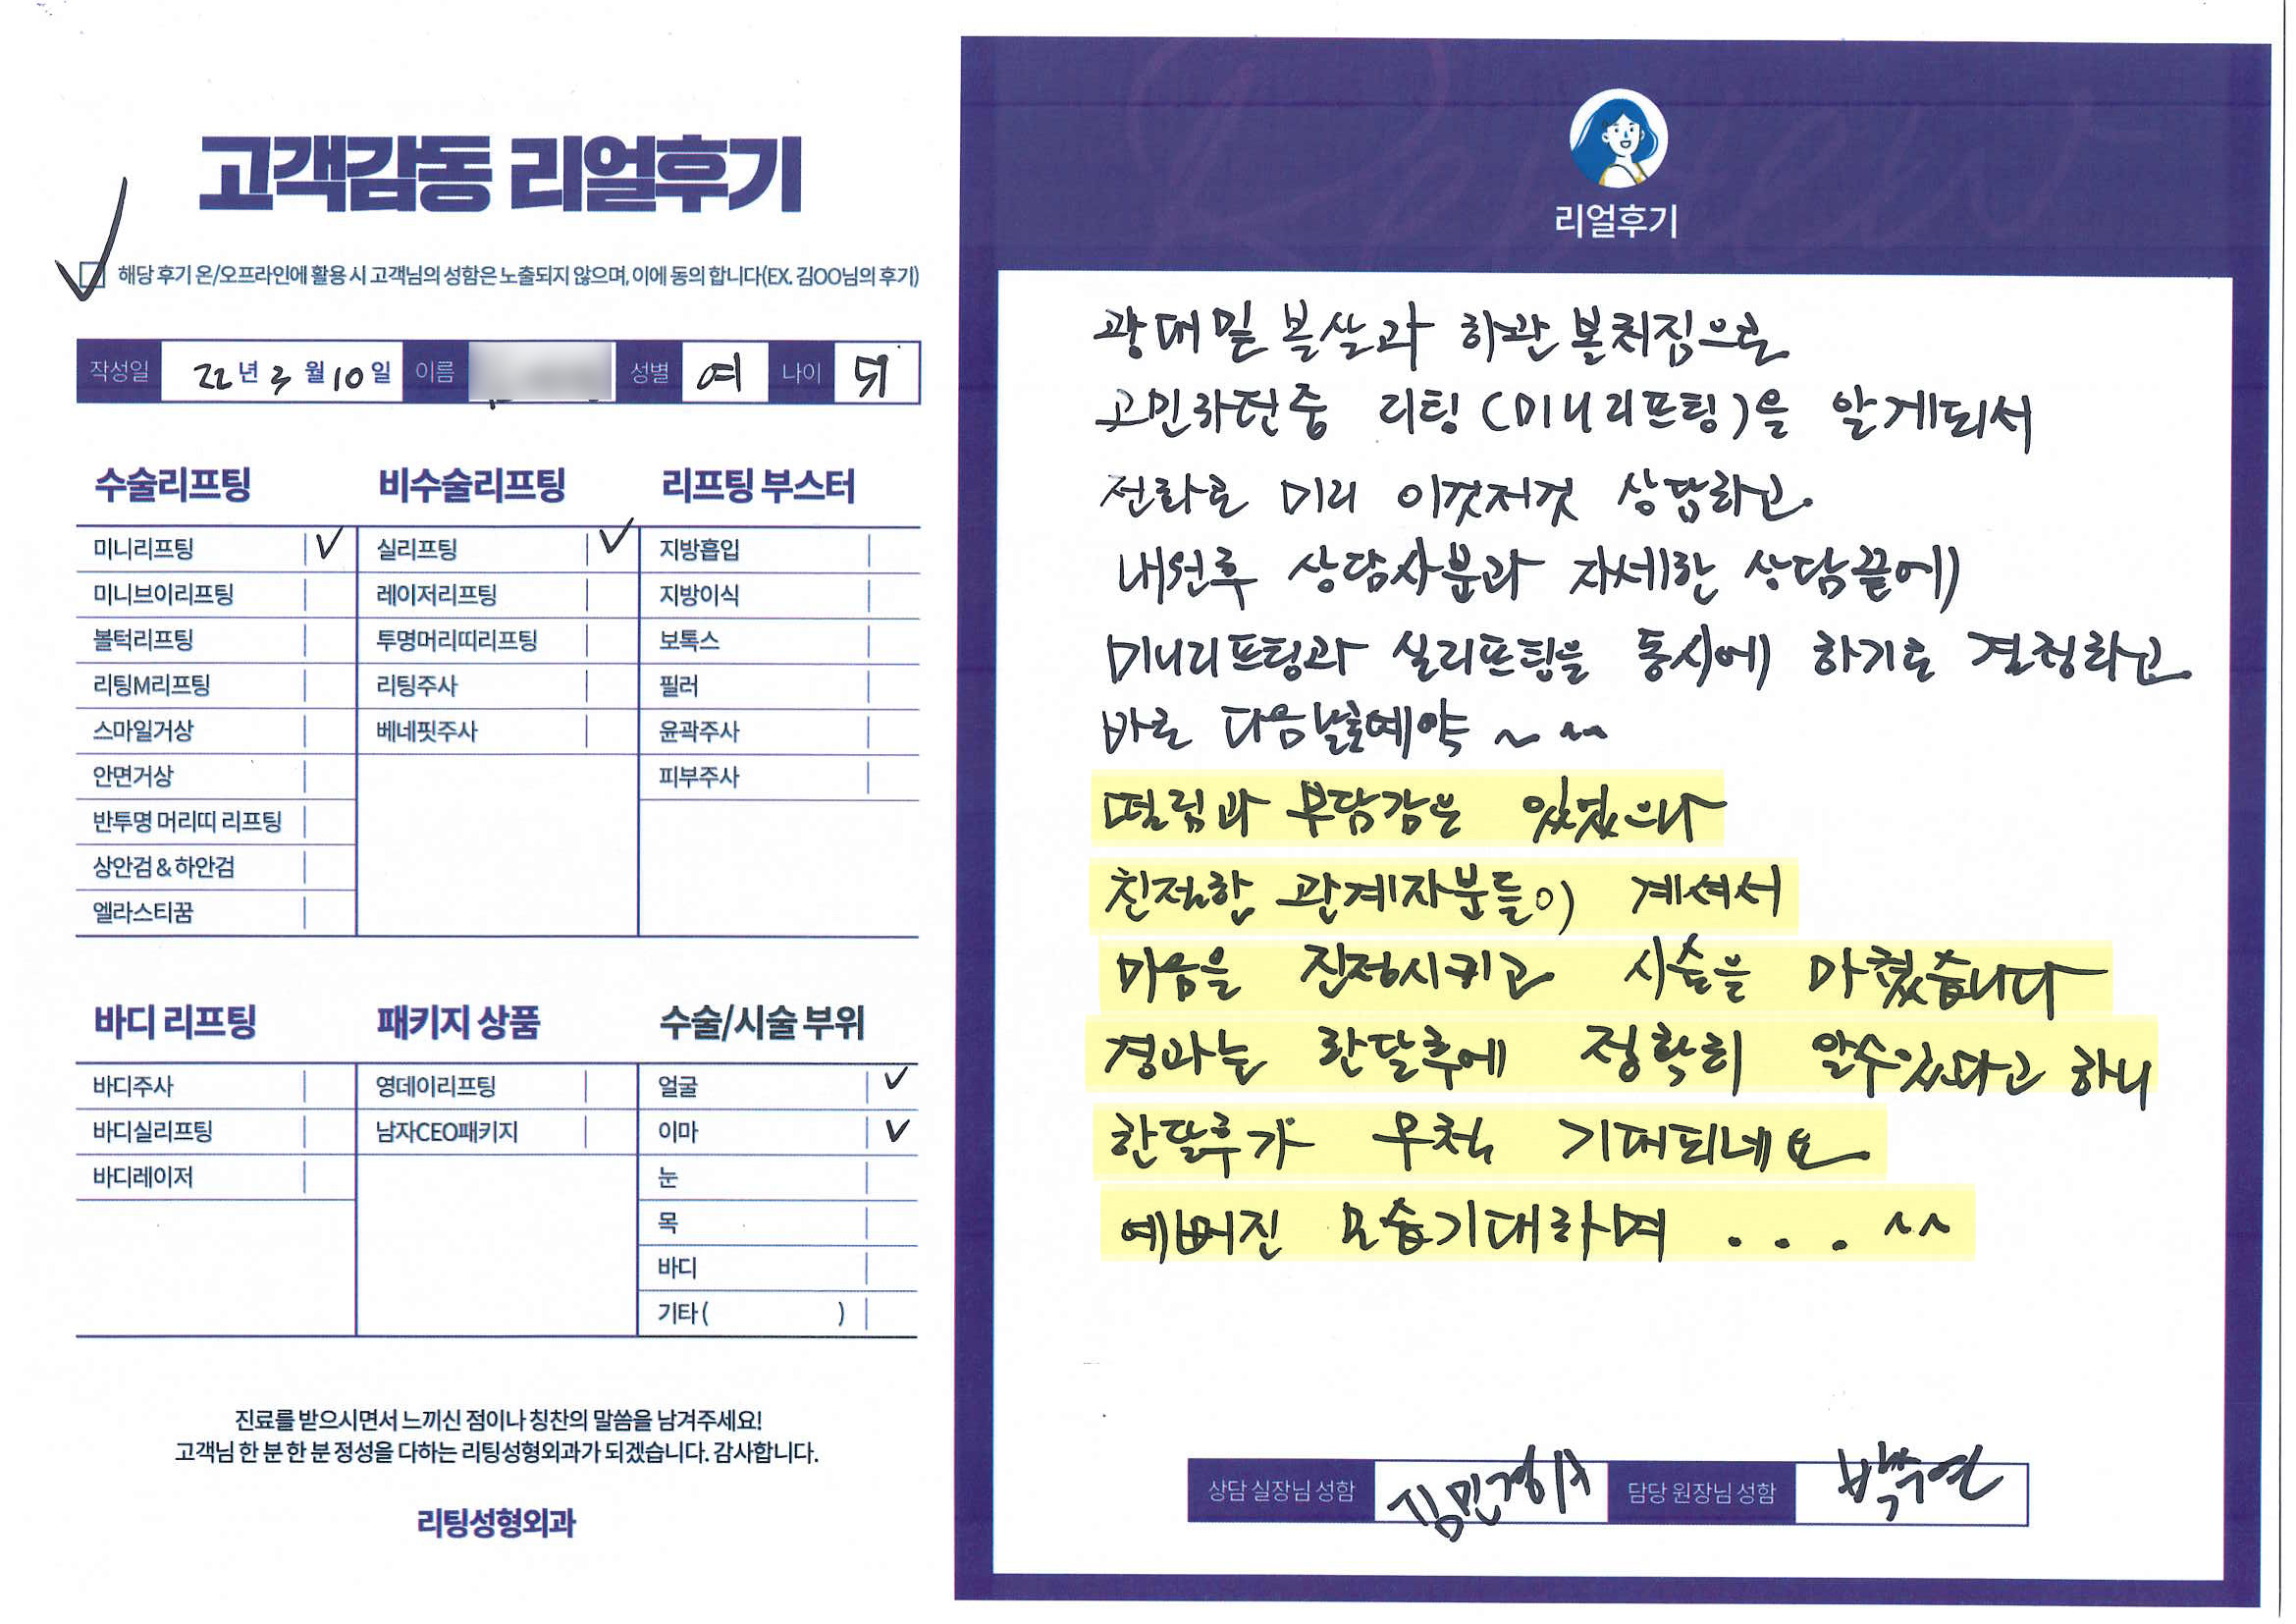 고객감동 리얼후기
해당 후기 온/오프라인에 활용 시 고객님의 성함은 노출되지 않으며, 이에 동의 합니다(EX. 김OO님의 후기)
작성일 22년 3월 10일 이름 성별 여 나이
수술리프팅
미니리프팅
미니브이리프팅
볼턱리프팅
리팅M리프팅
스마일거상
안면거상
반투명 머리띠 리프팅
상안검 & 하안검
엘라스티꿈
비수술리프팅
실리프팅
레이저리프팅
투명머리띠리프팅
리팅주사
베네핏주사
리프팅 부스터
지방흡입
지방이식
보톡스
필러
윤곽주사
피부주사
바디 리프팅
바디주사
바디실리프팅
바디레이저
패키지 상품
영데이리프팅
남자CEO패키지
수술/시술 부위
얼굴
이마
눈
목
바디
기타 ( )
진료를 받으시면서 느끼신 점이나 칭찬의 말씀을 남겨주세요!
고객님 한 분 한 분 정성을 다하는 리팅성형외과가 되겠습니다. 감사합니다.
리팅성형외과
리얼후기
광대밑 볼살과 하관 볼처짐으로
고민하던중 리팅(미니리프팅)을 알게되서
전화로 미리 이것저것 상담하고.
내원후 상담사분과 자세한 상담끝에
미니리프팅과 실리프팅을 동시에 하기로 결정하고
바로 다음날로예약 ~ ^^
떨림과 부담감은 있었으나
친절한 관계자분들이 계셔서
마음을 진정시키고 시술을 마쳤습니다
경과는 한달후에 정확히 알수있다고 하니
한달후가 무척 기대되네요
예뻐진 모습기대하며 . . . ^^
상담 실장님 성함 김민경 담당 원장님 성함 박수연